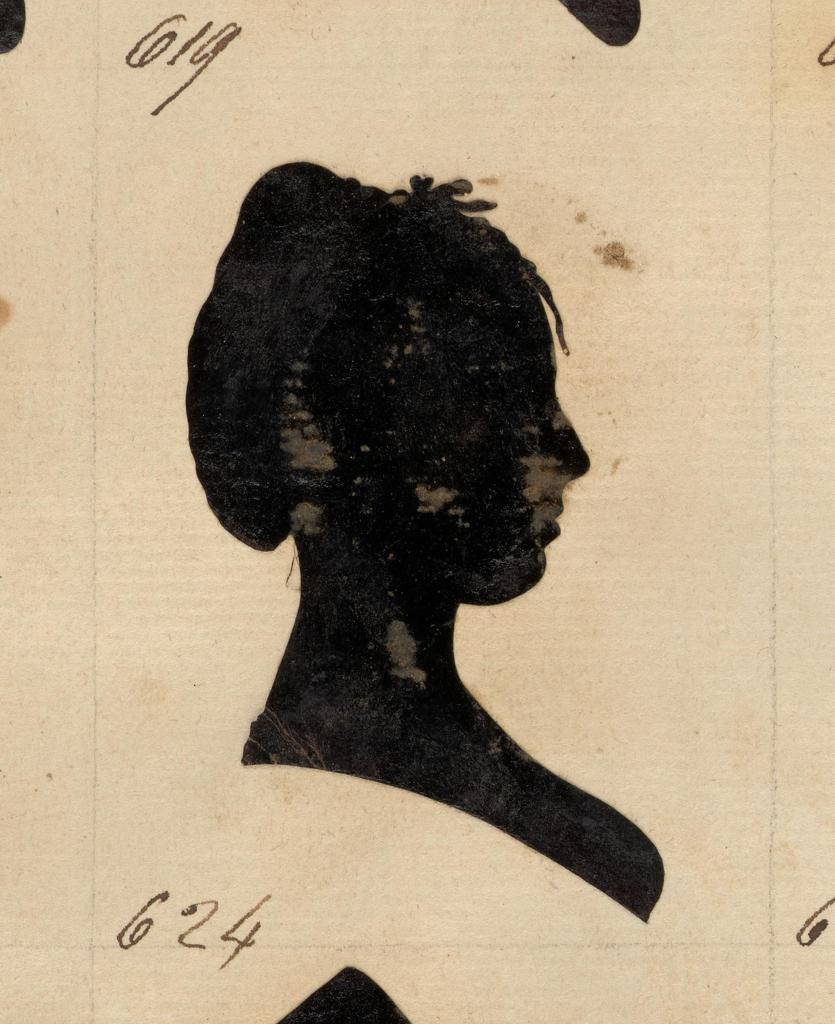 619
624